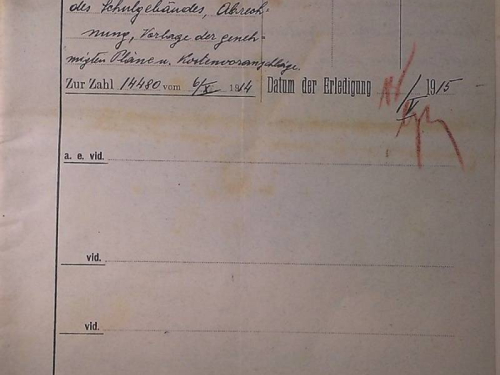 des Schulgebäudes, Abrech-
nung, Vorlage der geneh-
migten Pläne u. Kostenvoranschläge.
Zur Zahl 14480 vom 6/X. 1914 Datum der Erledigung / V 1915
a. e. vid.
vid.
vid.